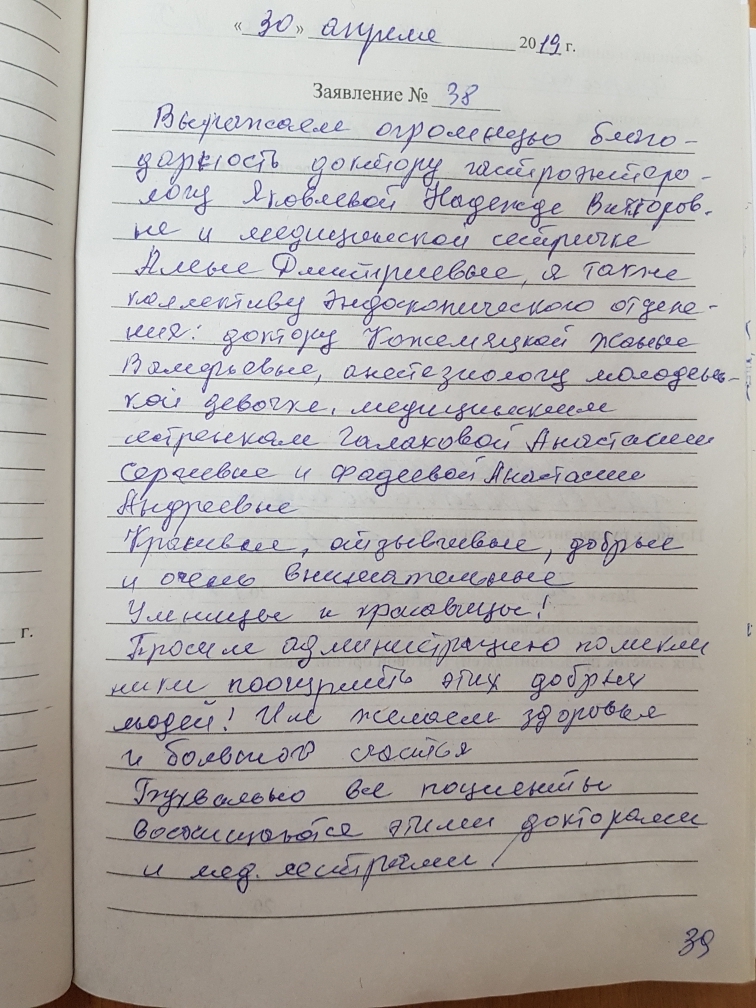 « 30 » апреля 2019 г.
Заявление № 38
Выражаем огромную благо-
дарность доктору гастроэнтеро-
логу Яковлевой Надежде Викторов-
не и медицинской сестричке
Алёне Дмитриевне, а также
коллективу Эндоскопического отделе-
ния: доктору Кожемяцкой Жанне
Валерьевне, анестезиологу молодень-
кой девочке, медицинским
сестренкам Галаховой Анастасии
Сергеевне и Фадеевой Анастасии
Андреевне
Красивые, отзывчивые, добрые
и очень внимательные
Умницы и красавицы!
Просим администрацию поликли
ники поощрить этих добрых
людей! Им желаем здоровья
и большого счастья
Буквально все пациенты
восхищаются этими докторами
и мед. сестрами!
г.
39